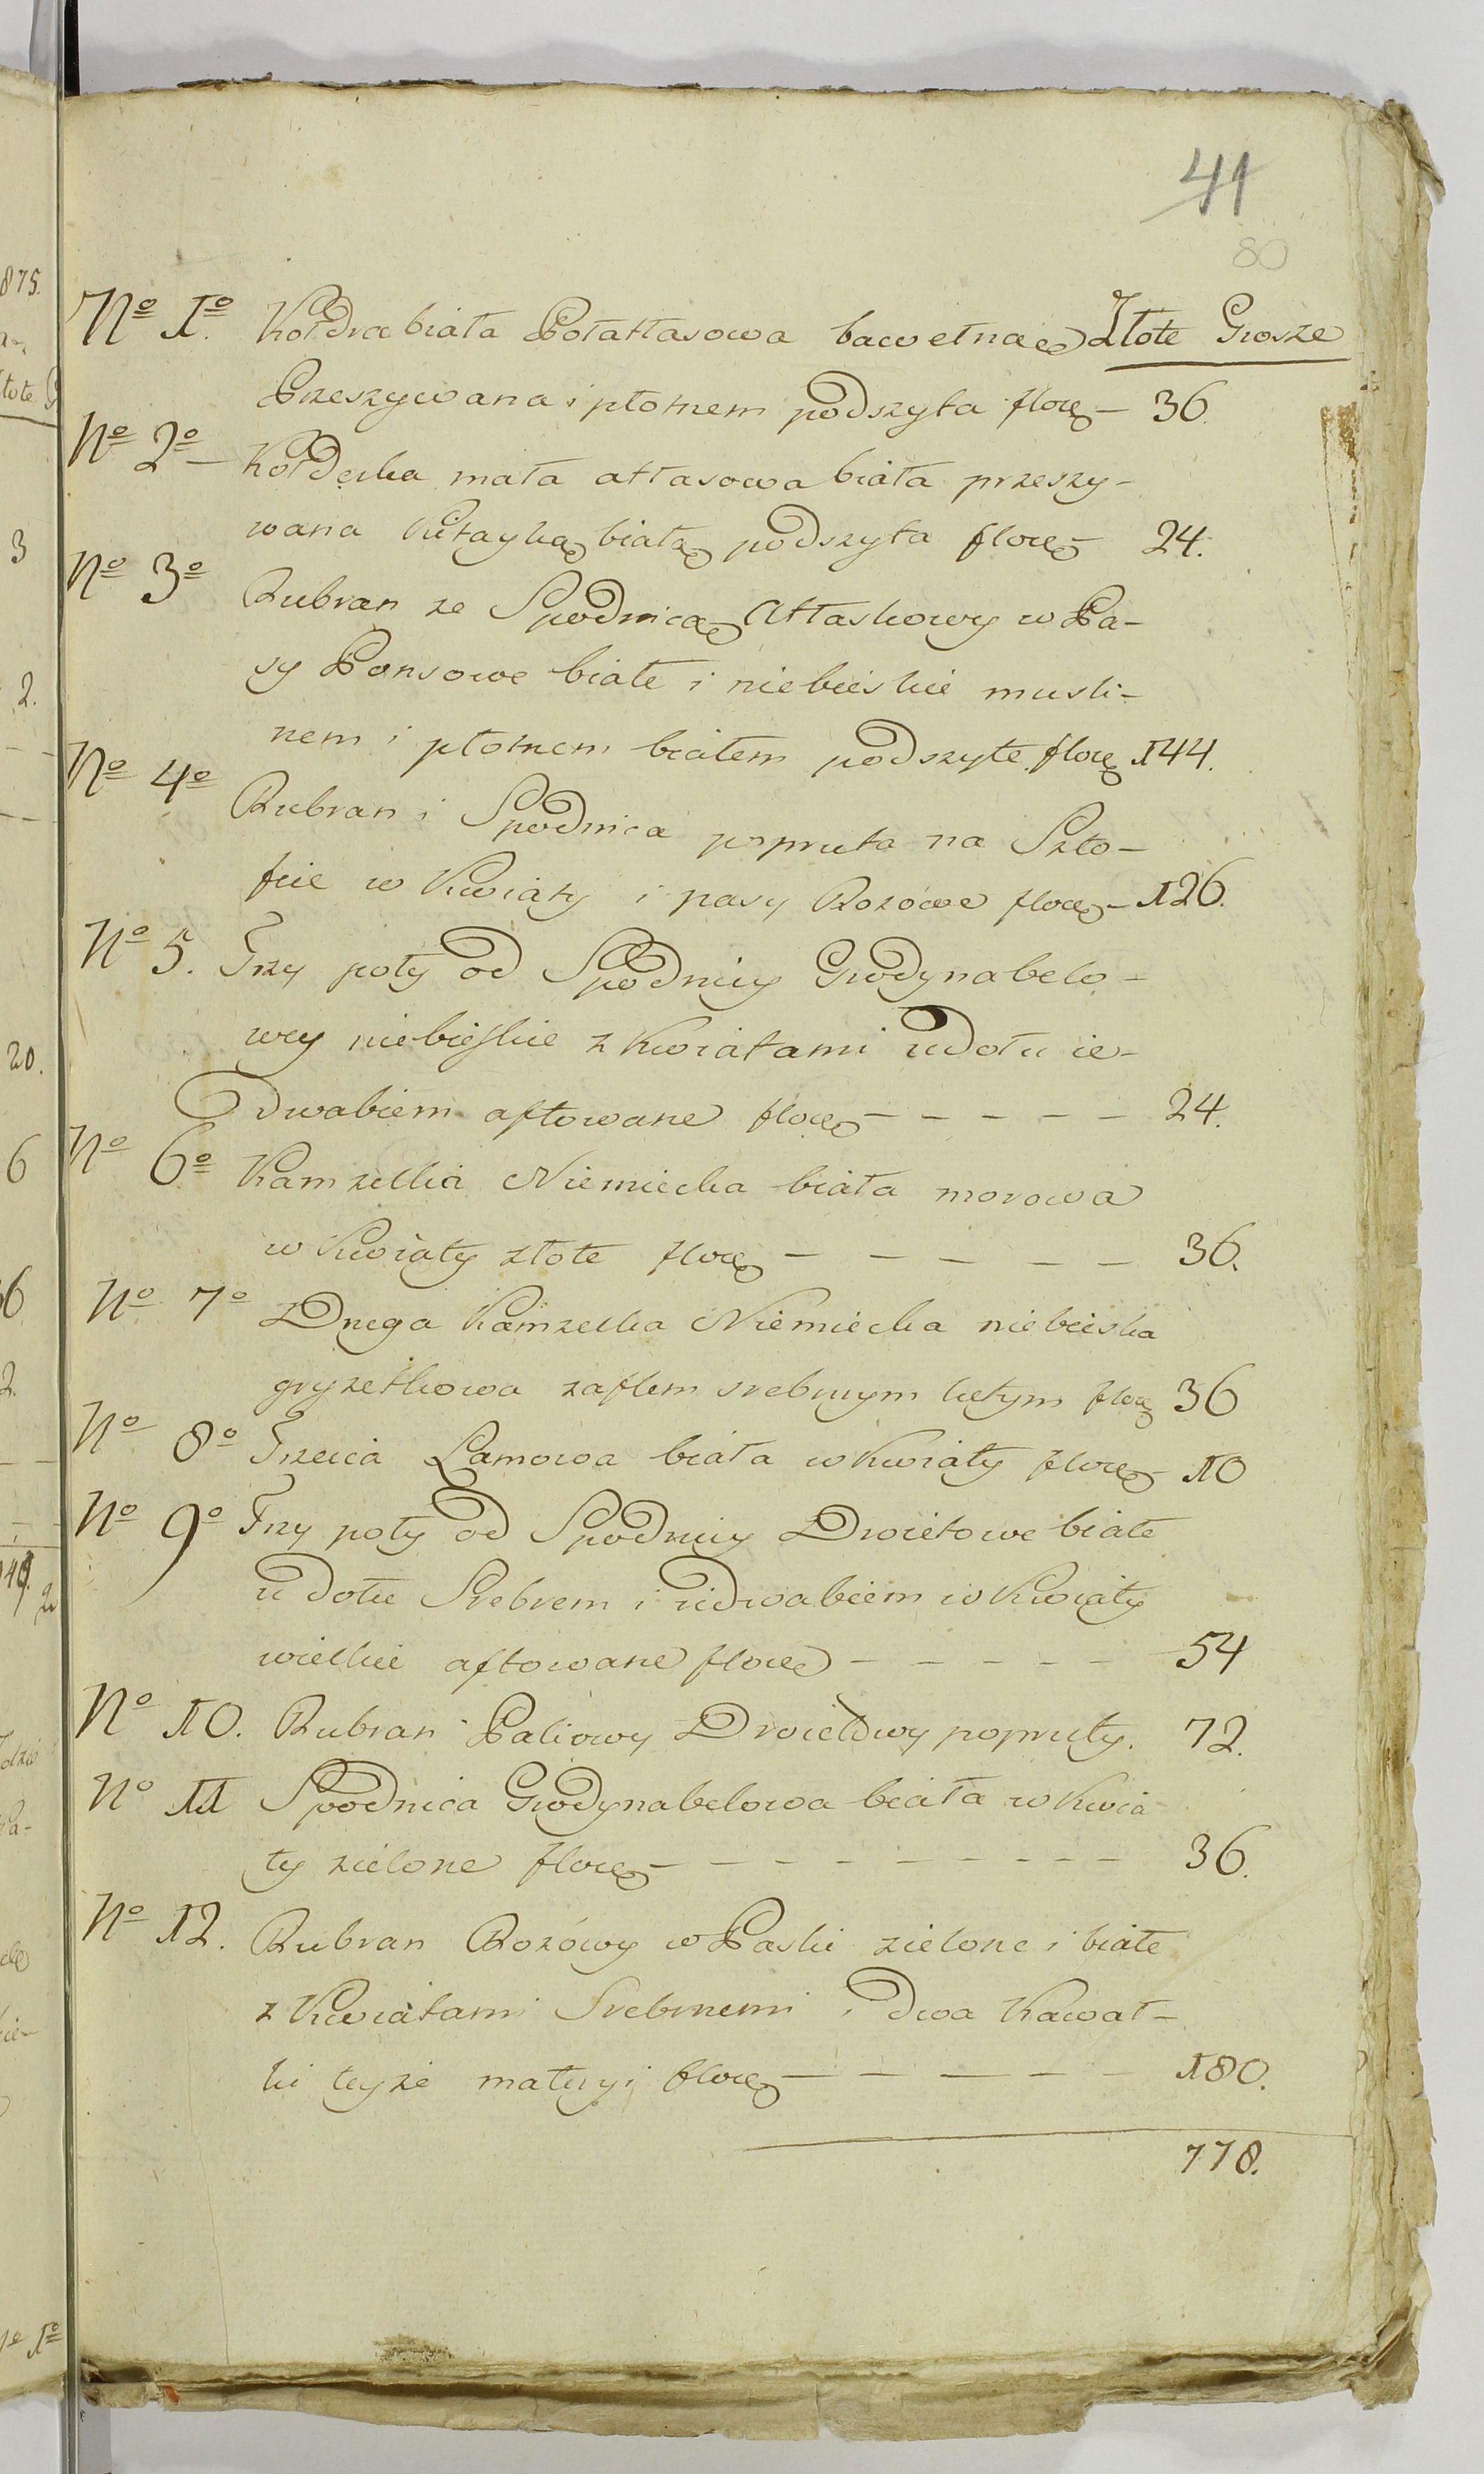 41
80
Złote Grosze
No 1o Kołdra biała Połatłasowa bawełnaą
Przeszywana i płotnem podszyta floreę — 36.
No 2o — Kołderka mała atłasowa biała przeszy-
wana Kitayką białą podszyta floreę — 24.
No 3o Kubran ze Spodnicą Atłaskowy w Pa-
sy Ponsowe białe i niebieskie musli-
nem i płotnem białem podszyte floreę 144.
No 4o Kubran i Spodnica popruta na Szto-
fie w Kwiaty i pasy Rozówe floreę — 126.
No 5. Trzy poły od Spodnicy Grodynabelo-
wey niebieskie z Kwiatami u dołu ie-
dwabiem aftowane floreę — — — — — 24.
No 6o Kamzelka Niemiecka biała morowa
w Kwiaty złote floreę — — — — — 36.
No 7o Druga Kamzelka Niemiecka niebieska
gryzetkowa zaflem srebrnym litym floreę 36
No 8o Trzecia Lamowa biała w Kwiaty floreę — 10
No 9o Trzy poły od Spodnicy Droietowe białe
u dołu Srebrem i iedwabiem w Kwiaty
wielkie aftowane floreę — — — — — 54
No 10. Kubran Paliowy Droietowy popruty. 72.
No 11 Spodnica Grodynabelowa biała w Kwia
ty zielone floreę — — — — — — — — — 36.
No 12. Kubran Rozówy w Paski zielone i białe
z Kwiatami Srebrnemi i dwa Kawał-
ki teyże materyi floreę — — — — — 180.
778.